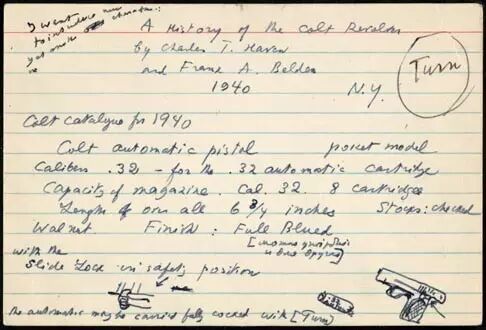 I want
to introduce
A History of the Colt Revolver
by Charles T. Haven
and Frank A. Belden
1940 N.Y.
Turn
Colt catalogue for 1940
Colt automatic pistol pocket model
Calibers .32 - for the .32 automatic cartridge
Capacity of magazine. Cal. 32. 8 cartridges
Length over all 6 3/4 inches Stocks: checked
Walnut Finish: Full Blued
with the
slide lock in safety position
the automatic may be carried fully cocked with [Turn]